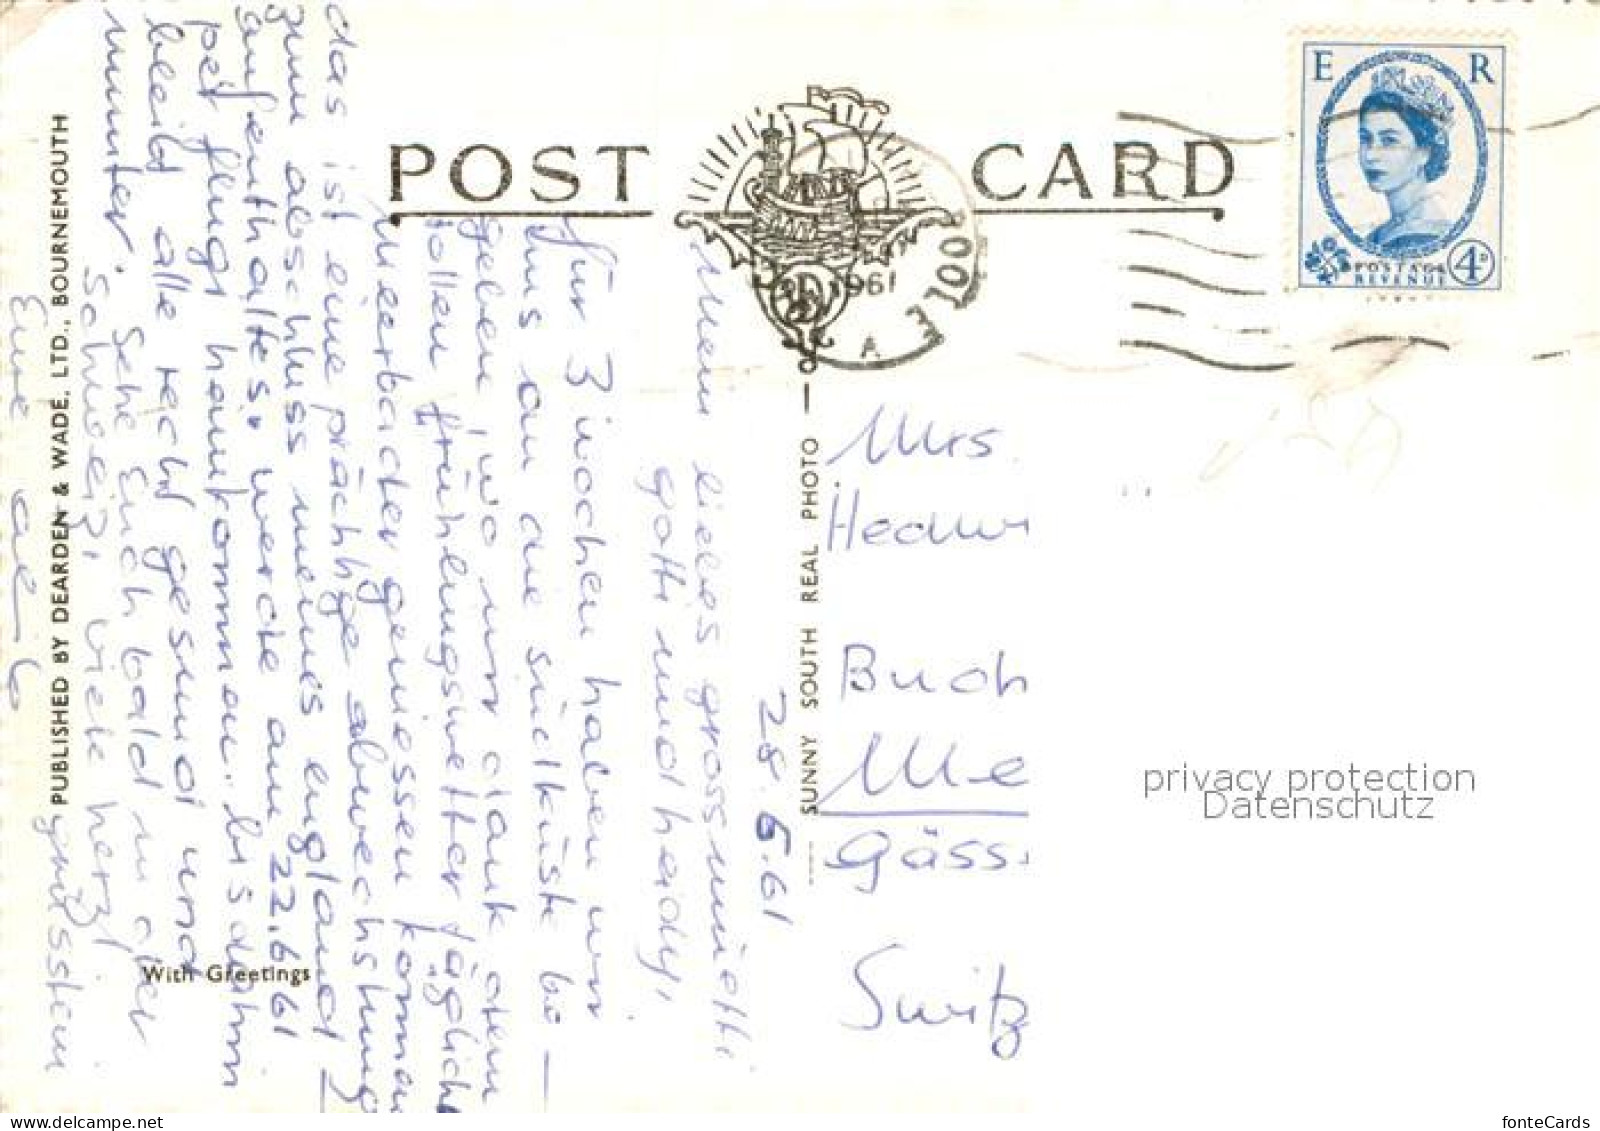 POST CARD
E R
POSTAGE
REVENUE
4D
POOLE
1961
A
PUBLISHED BY DEARDEN & WADE, LTD., BOURNEMOUTH
SUNNY SOUTH REAL PHOTO
With Greetings
28.5.61
Mein liebes grossmuetti
gotti und heidy,
für 3 wochen haben wir
uns an die südküste be-
geben, wo wir dank dem
tollen frühlingswetter täglich
Meerbäder geniessen können
das ist eine prächtige abwechslung
zum abschluss meines england-
aufenthaltes. werde am 22.6.61
per flugi heimkommen. bis dahin
bleibt alle recht gesund und
munter. Sehe Euch bald in der
Schweiz, viele herzl
grüsslein
Eure
Mrs.
Hedwi
Buch
Me
Gäss
Switz
privacy protection
Datenschutz
fonteCards
www.delcampe.net